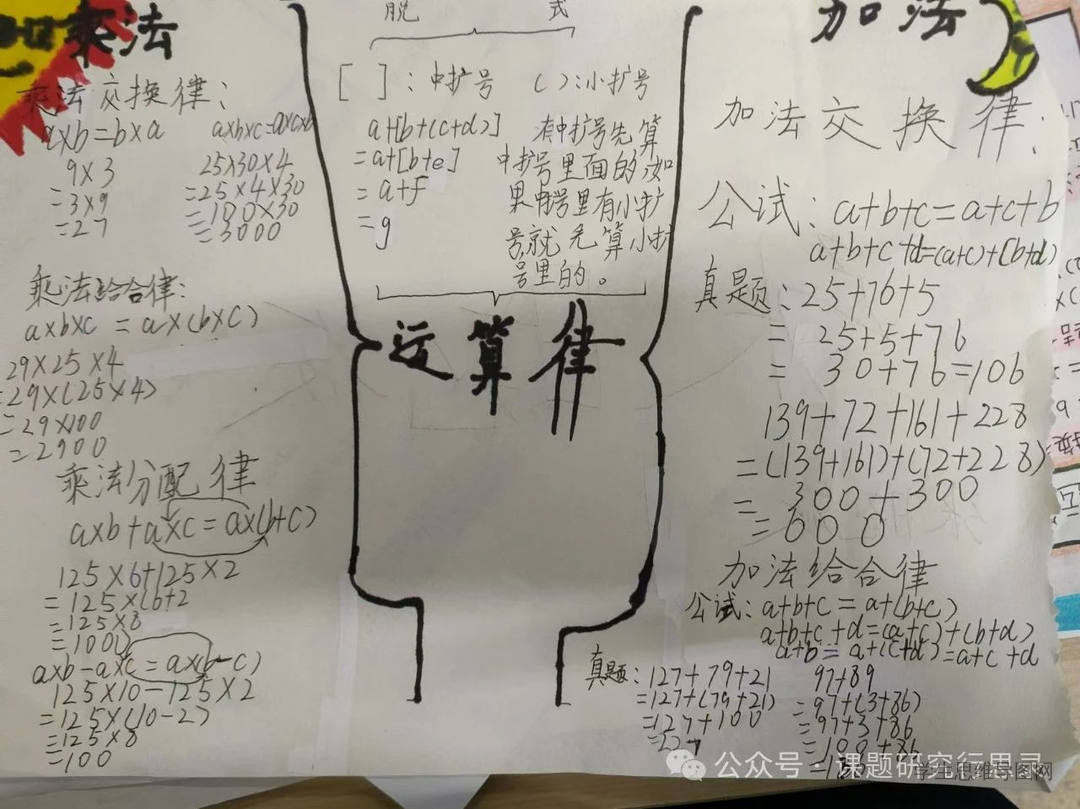 乘法
乘法交换律:
a×b=b×a
9×3
=3×9
=27
a×b×c=a×c×b
25×30×4
=25×4×30
=100×30
=3000
乘法给合律:
a×b×c=a×(b×c)
29×25×4
=29×(25×4)
=29×100
=2900
乘法分配律
a×b+a×c=a×(b+c)
125×6+125×2
=125×(6+2
=125×8
=1000
a×b-a×c=a×(b-c)
125×10-125×2
=125×(10-2)
=125×8
=100
脱 式
[ ]:中扩号 ( ):小扩号
a+[b+(c+d)]
=a+[b+e]
=a+f
=g
有中扩号先算
中扩号里面的,如
果中扩号里有小扩
号,就先算小扩
号里的。
运算律
加法
加法交换律:
公试:a+b+c=a+c+b
a+b+c+d=(a+c)+(b+d)
真题:25+76+5
=25+5+76
=30+76=106
139+72+161+228
=(139+161)+(72+228)
=300+300
=600
加法给合律
公试:a+b+c=a+(b+c)
a+b+c+d=(a+c)+(b+d)
a+b=a+(c+d)=a+c+d
真题:127+79+21
=127+(79+21)
=127+100
=227
97+89
=97+(3+86)
=97+3+86
=100+86
公众号·课题研究行思录
学生思维导图网